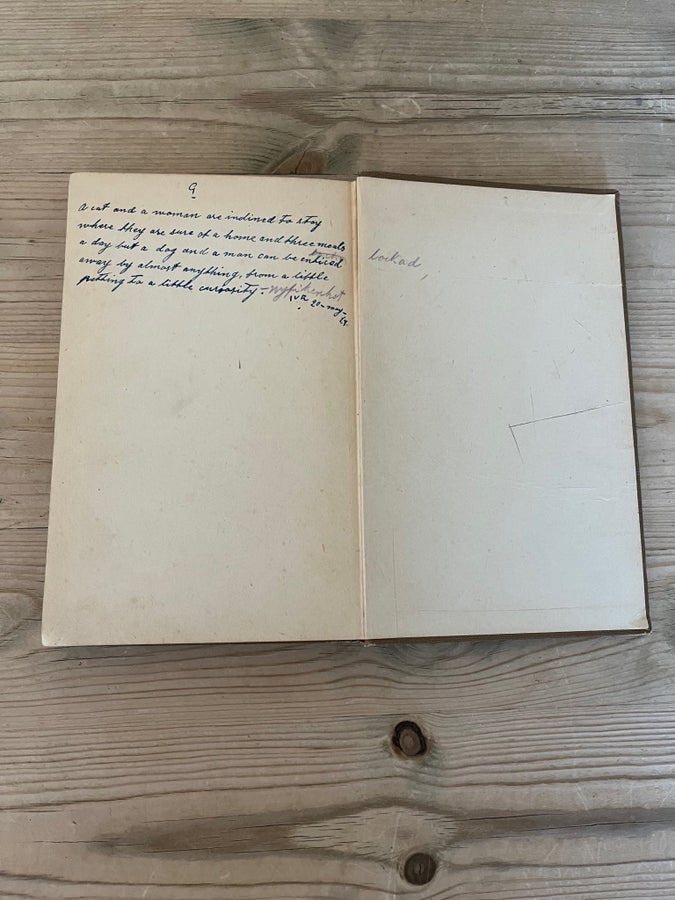 A cat and a woman are inclined to stay
where they are sure of a home and three meals
a day but a dog and a man can be enticed
lockad
away by almost anything, from a little
petting to a little curiosity - nyfikenhet
20-may-